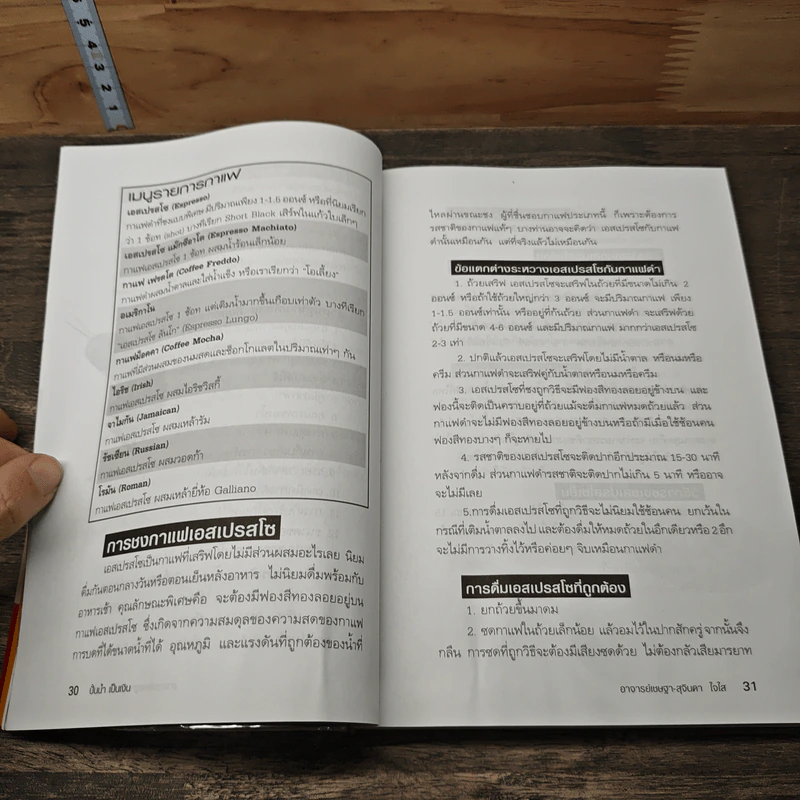 5
4
3
2
1
เมนูรายการกาแฟ
เอสเปรสโซ (Espresso)
กาแฟดำที่ชงแบบพิเศษ มีปริมาณเพียง 1-1.5 ออนซ์ หรือที่นิยมเรียก
ว่า 1 ช้อท (shot) บางทีเรียก Short Black เสิร์ฟในแก้วใบเล็กๆ
เอสเปรสโซ แม็กซิอาโต (Espresso Machiato)
กาแฟเอสเปรสโซ 1 ช้อท ผสมน้ำร้อนเล็กน้อย
กาแฟ เฟรดโด (Coffee Freddo)
กาแฟดำผสมน้ำตาลและใส่น้ำแข็ง หรือเราเรียกว่า "โอเลี้ยง"
อเมริกาโน
กาแฟเอสเปรสโซ 1 ช้อท แต่เติมน้ำมากขึ้นเกือบเท่าตัว บางทีเรียก
"เอสเปรสโซ ลันโก" (Espresso Lungo)
กาแฟม็อคคา (Coffee Mocha)
กาแฟที่มีส่วนผสมของนมสดและช็อกโกแลตในปริมาณเท่าๆ กัน
ไอริช (Irish)
กาแฟเอสเปรสโซ ผสมไอริชวิสกี้
จาไมกัน (Jamaican)
กาแฟเอสเปรสโซ ผสมเหล้ารัม
รัซเซี่ยน (Russian)
กาแฟเอสเปรสโซ ผสมวอดก้า
โรมัน (Roman)
กาแฟเอสเปรสโซ ผสมเหล้ายี่ห้อ Galliano
การชงกาแฟเอสเปรสโซ
เอสเปรสโซเป็นกาแฟที่เสริฟโดยไม่มีส่วนผสมอะไรเลย นิยม
ดื่มกันตอนกลางวันหรือตอนเย็นหลังอาหาร ไม่นิยมดื่มพร้อมกับ
อาหารเช้า คุณลักษณะพิเศษคือ จะต้องมีฟองสีทองลอยอยู่บน
กาแฟเอสเปรสโซ ซึ่งเกิดจากความสมดุลของความสดของกาแฟ
การบดที่ได้ขนาดน้ำที่ได้ อุณหภูมิ และแรงดันที่ถูกต้องของน้ำที่
30 ปั้นน้ำ เป็นเงิน
ไหลผ่านขณะชง ผู้ที่ชื่นชอบกาแฟประเภทนี้ ก็เพราะต้องการ
รสชาติของกาแฟแท้ๆ บางท่านอาจจะคิดว่า เอสเปรสโซกับกาแฟ
ดำนั้นเหมือนกัน แต่ที่จริงแล้วไม่เหมือนกัน
ข้อแตกต่างระหวางเอสเปรสโซกับกาแฟดำ
1. ถ้วยเสริฟ เอสเปรสโซจะเสริฟในถ้วยที่มีขนาดไม่เกิน 2
ออนซ์ หรือถ้าใช้ถ้วยใหญ่กว่า 3 ออนซ์ จะมีปริมาณกาแฟ เพียง
1-1.5 ออนซ์เท่านั้น หรืออยู่ที่ก้นถ้วย ส่วนกาแฟดำ จะเสริฟด้วย
ถ้วยที่มีขนาด 4-6 ออนซ์ และมีปริมาณกาแฟ มากกว่าเอสเปรสโซ
2-3 เท่า
2. ปกติแล้วเอสเปรสโซจะเสริฟโดยไม่มีน้ำตาล หรือนมหรือ
ครีม ส่วนกาแฟดำจะเสริฟคู่กับน้ำตาลหรือนมหรือครีม
3. เอสเปรสโซที่ชงถูกวิธีจะมีฟองสีทองลอยอยู่ข้างบน และ
ฟองนี้จะติดเป็นคราบอยู่ที่ถ้วยแม้จะดื่มกาแฟหมดถ้วยแล้ว ส่วน
กาแฟดำจะไม่มีฟองสีทองลอยอยู่ข้างบนหรือถ้ามีเมื่อใช้ช้อนคน
ฟองสีทองบางๆ ก็จะหายไป
4. รสชาติของเอสเปรสโซจะติดปากอีกประมาณ 15-30 นาที
หลังจากดื่ม ส่วนกาแฟดำรสชาติจะติดปากไม่เกิน 5 นาที หรืออาจ
จะไม่มีเลย
5.การดื่มเอสเปรสโซที่ถูกวิธีจะไม่นิยมใช้ช้อนคน ยกเว้นใน
กรณีที่เติมน้ำตาลลงไป และต้องดื่มให้หมดถ้วยในอึกเดียวหรือ 2 อึก
จะไม่มีการวางทิ้งไว้หรือค่อยๆ จิบเหมือนกาแฟดำ
การดื่มเอสเปรสโซที่ถูกต้อง
1. ยกถ้วยขึ้นมาดม
2. ซดกาแฟในถ้วยเล็กน้อย แล้วอมไว้ในปากสักครู่ จากนั้นจึง
กลืน การซดที่ถูกวิธีจะต้องมีเสียงซดด้วย ไม่ต้องกลัวเสียมารยาท
อาจารย์เชษฐา-สุจินดา ใจใส 31